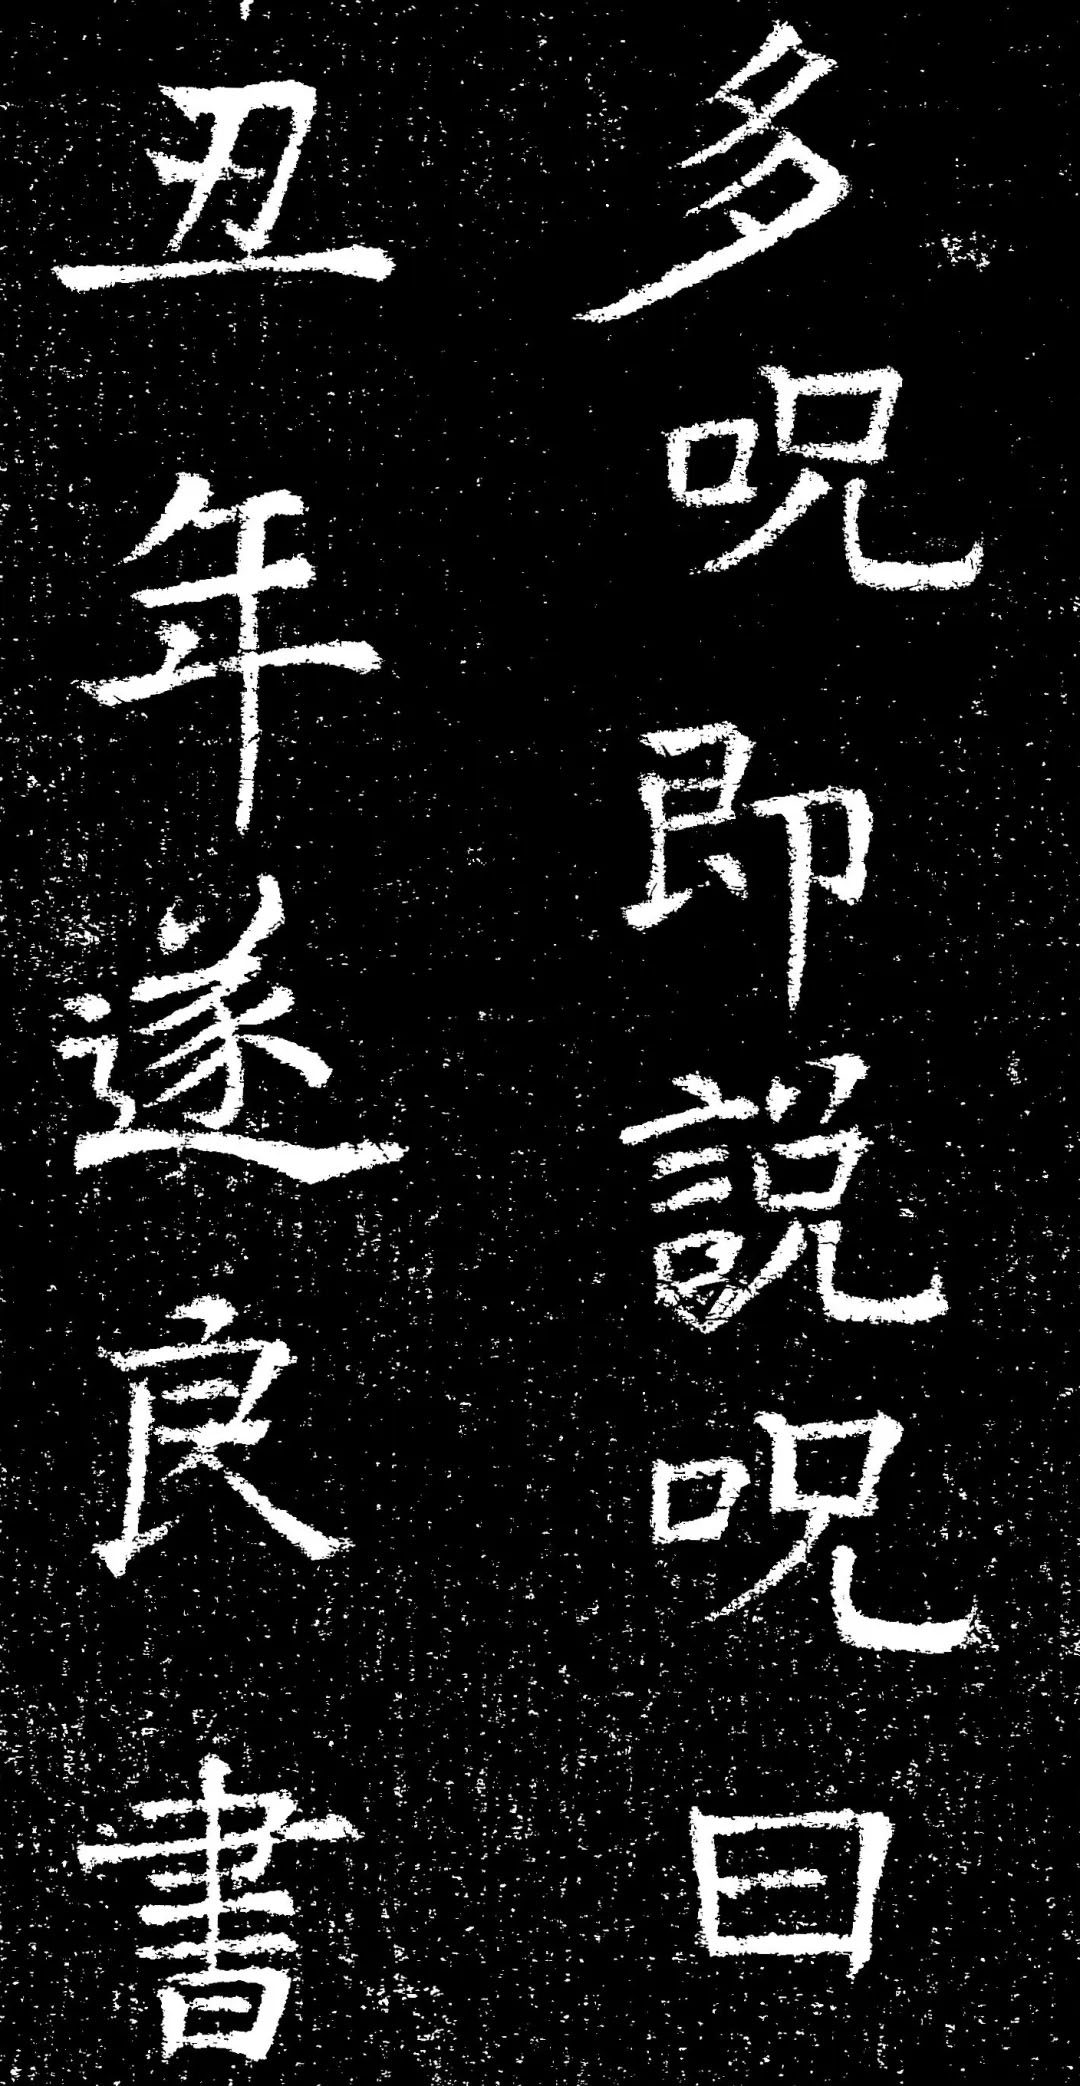 多呪即說呪曰
丑年遂良書